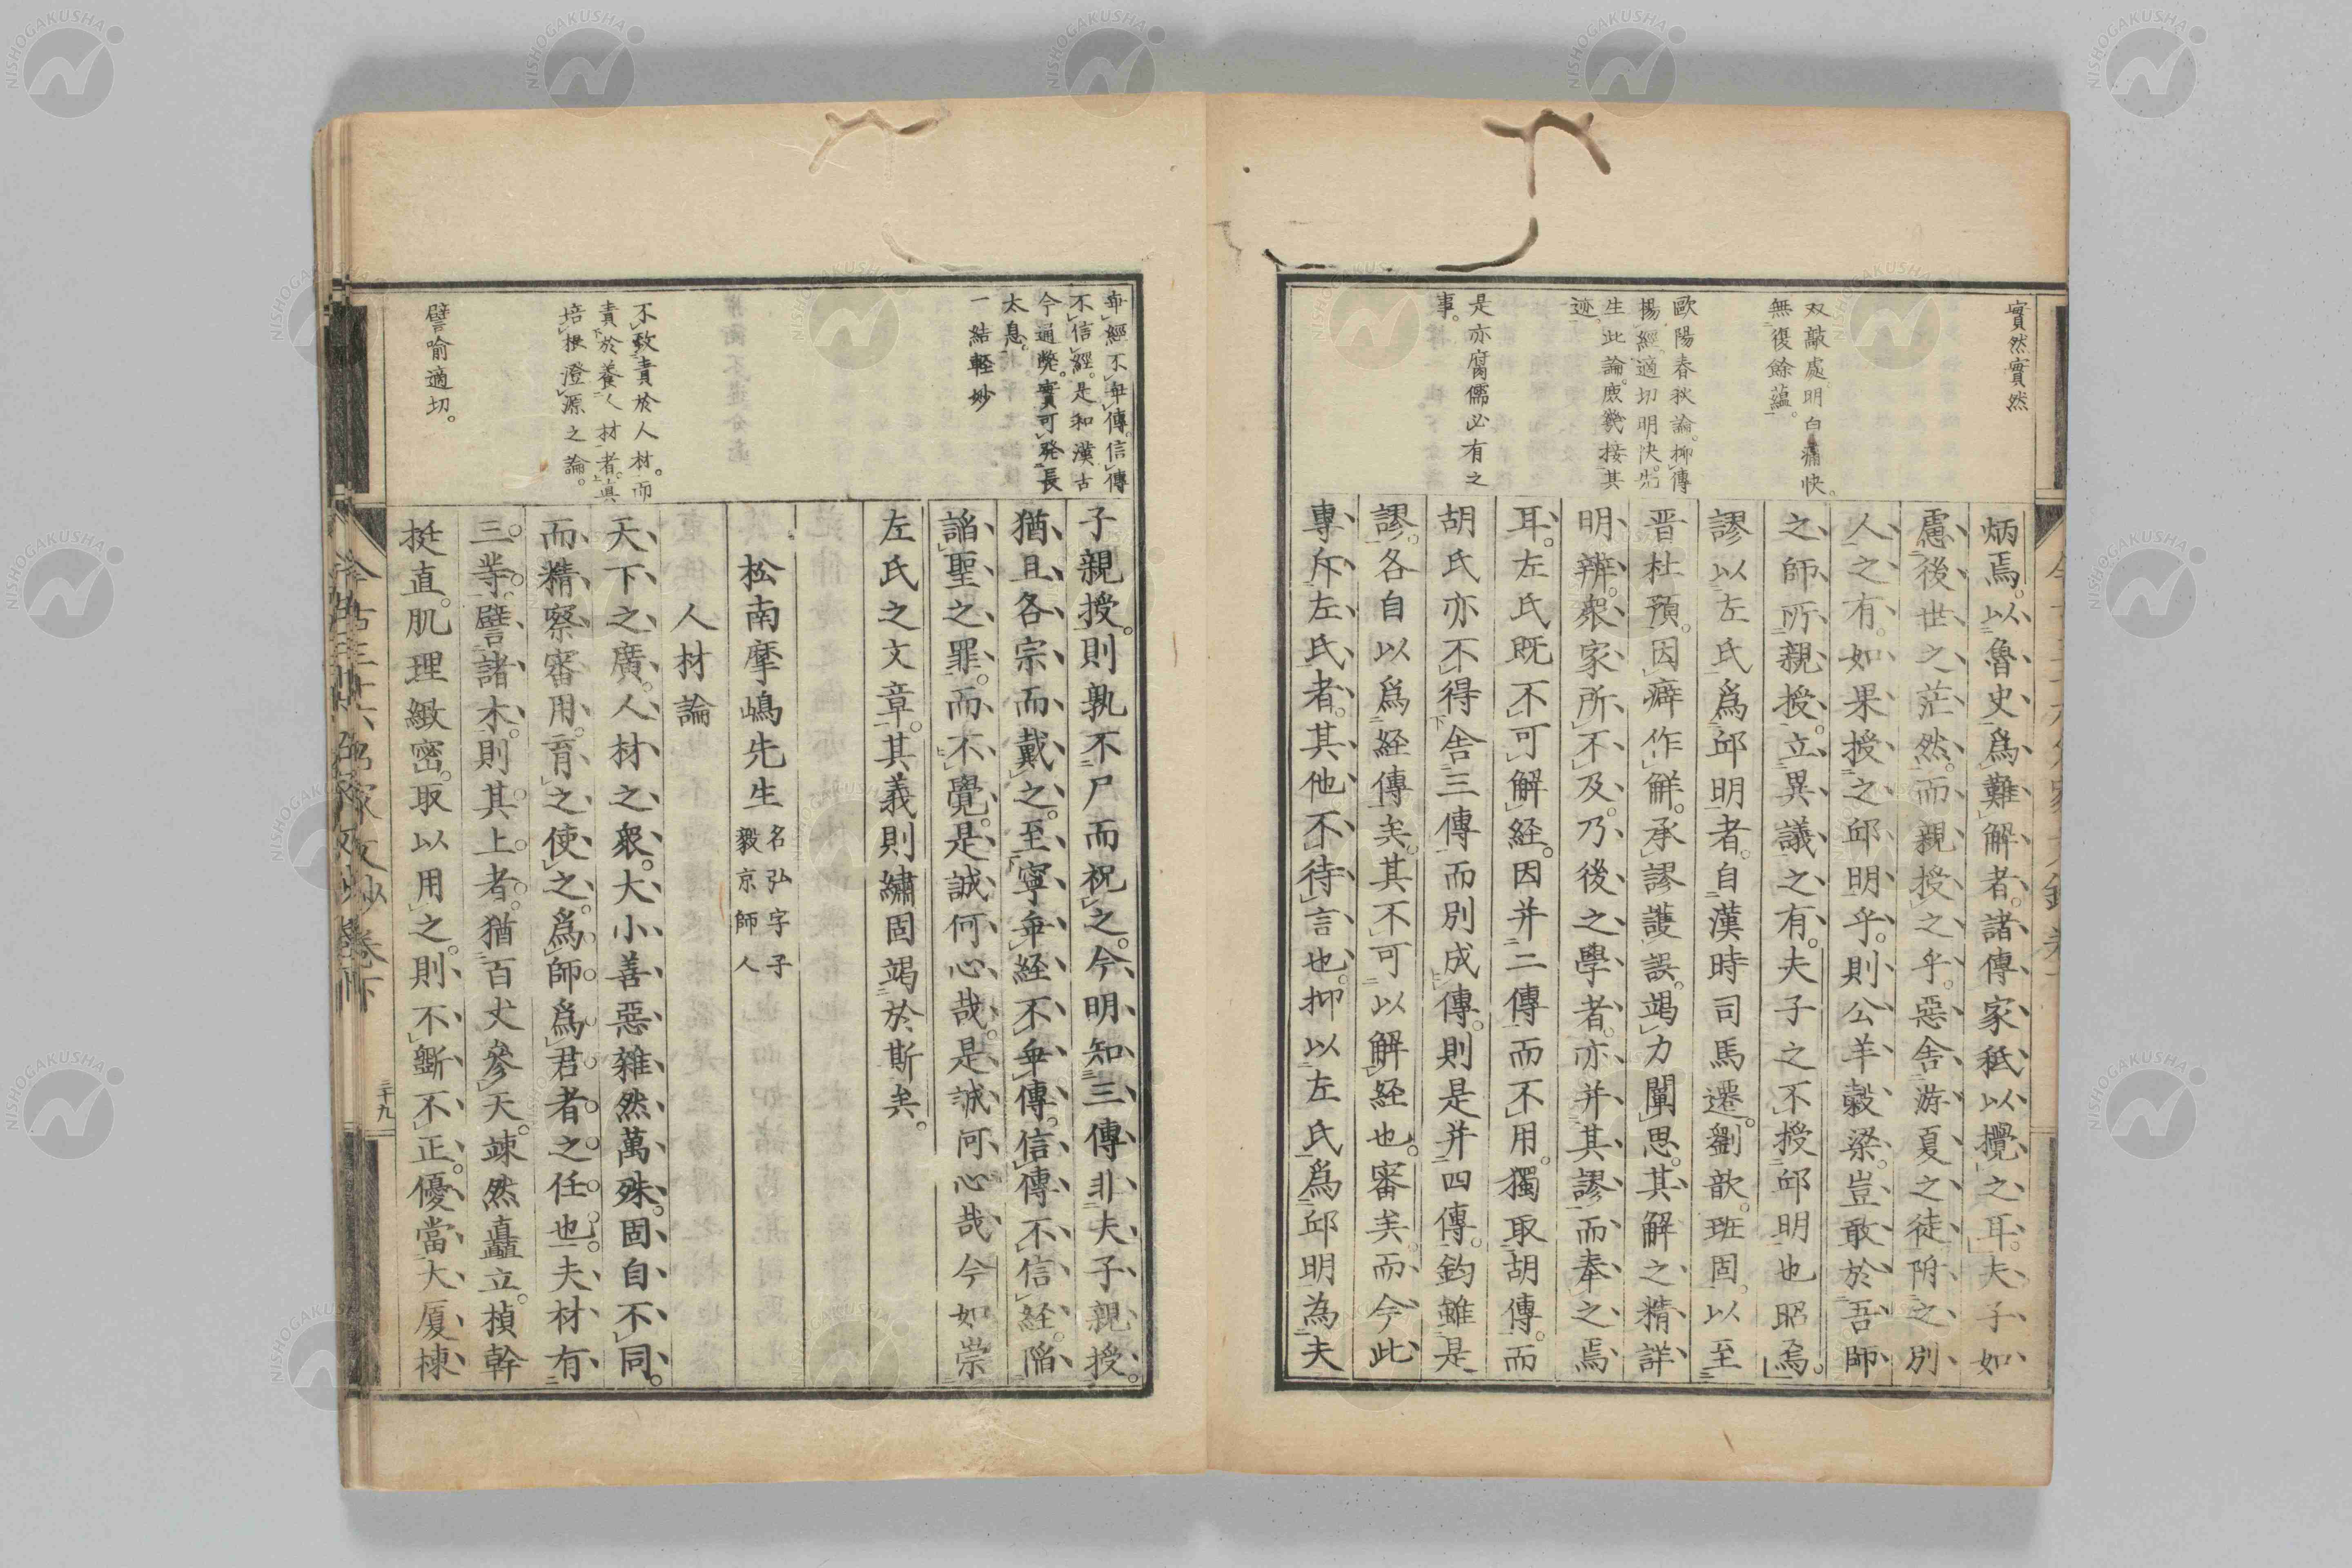 實然實然
双敲處。明白痛快。
無復餘蘊。
歐陽春秋論。抑傳
揚經。適切明快。先
生此論。庶幾接其
迹。
是亦腐儒必有之
事。
炳焉。以魯史爲難解者。諸傳家秖以攪之耳。夫子如
慮後世之茫然。而親授之乎。惡舍游夏之徒。附之別
人之有。如果授之邱明乎。則公羊榖梁。豈敢於吾師
之師所親授。立異議之有。夫子之不授邱明也昭焉。
謬以左氏爲邱明者。自漢時司馬遷。劉歆。班固。以至
晋杜預。因癖作解。承謬護誤。竭力闡思。其解之精詳
明辨。衆家所不及。乃後之學者。亦并其謬而奉之焉
耳。左氏既不可解経。因并二傳而不用。獨取胡傳。而
胡氏亦不得舍三傳而別成傳。則是并四傳。鈞雖是
謬。各自以爲経傳矣。其不可以解経也。審矣。而今此
專斥左氏者。其他不待言也。抑以左氏爲邱明為夫
毎經不毎傳。信傳
不信經。是和漢古
今通弊。實可発長
太息。
一結輕妙
不致責於人材。而
責於養人材者。真
培根澄源之論。
譬喻適切。
子親授。則孰不尸而祝之。今明知三傳非夫子親授。
猶且各宗而戴之。至寧毎経不毎傳。信傳不信経。陷
謟聖之罪。而不覺。是誠何心哉。是誠何心哉今如崇
左氏之文章。其義則繡固竭於斯矣。
松南摩嶋先生 名弘字子
毅京師人
人材論
天下之廣。人材之衆。大小善惡。雜然萬殊。固自不同。
而精察審用。育之使之。爲師爲君者之任也。夫材有
三等。譬諸木。則其上者。猶百丈參天。竦然矗立。楨幹
挺直。肌理緻密。取以用之。則不斲不正。優當大厦棟
三十九